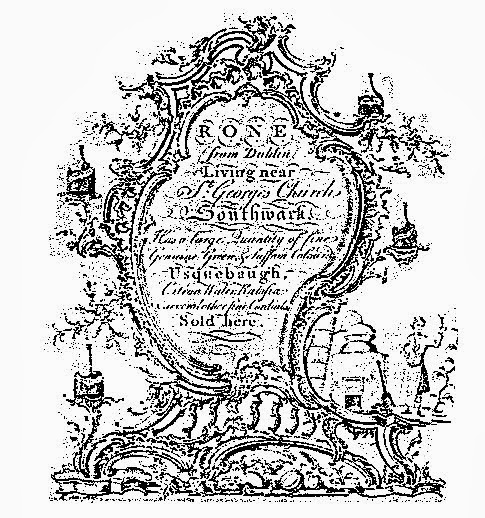 RONE
from Dublin,
Living near
St. George's Church,
Southwark,
Has a large Quantity of fine
Genuine Green & Saffron Colour'd
Usquebaugh,
Citron Water, Ratafia
other fine Cordials
Sold here.